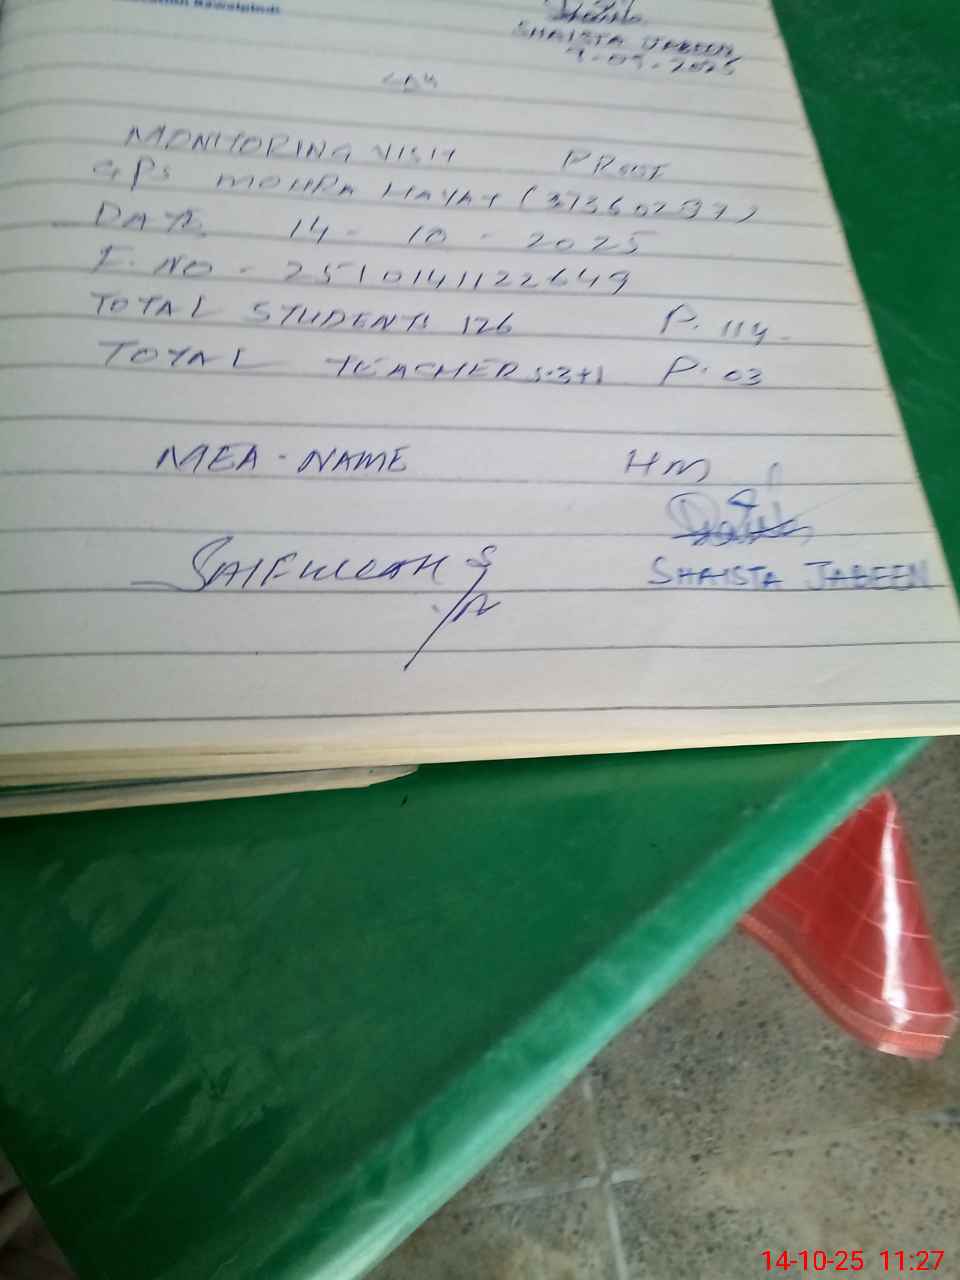 Rawalpindi
SHAISTA JABEEN
9-09-2025
MONITORING VISIT PROOF
GPS MOHRA HAYAT (37360297)
DATE 14-10-2025
E. NO - 2510141122649
TOTAL STUDENTS 126 P. 114
TOTAL TEACHERS:3+1 P. 03
MEA-NAME HM
SAIFULLAH SHAISTA JABEEN
14-10-25 11:27